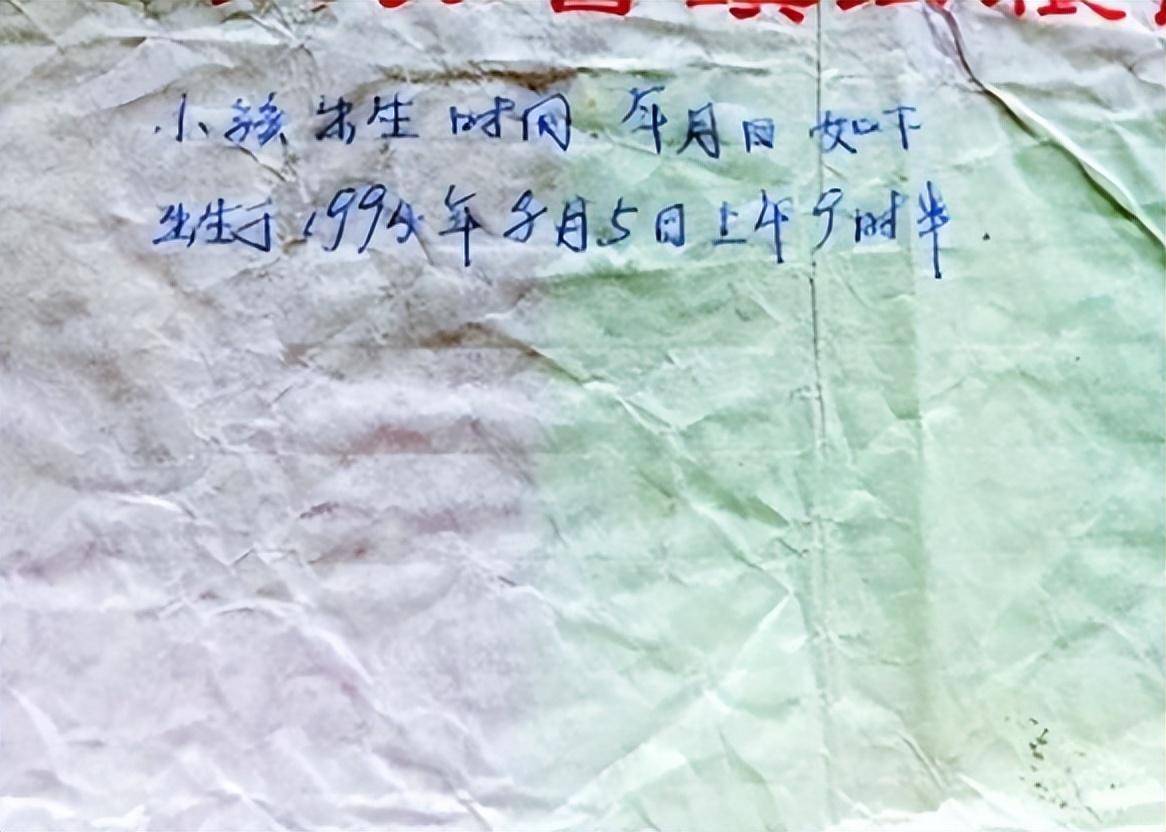 小孩出生时间 年月日如下
出生于1994年 月5日上午9时半.